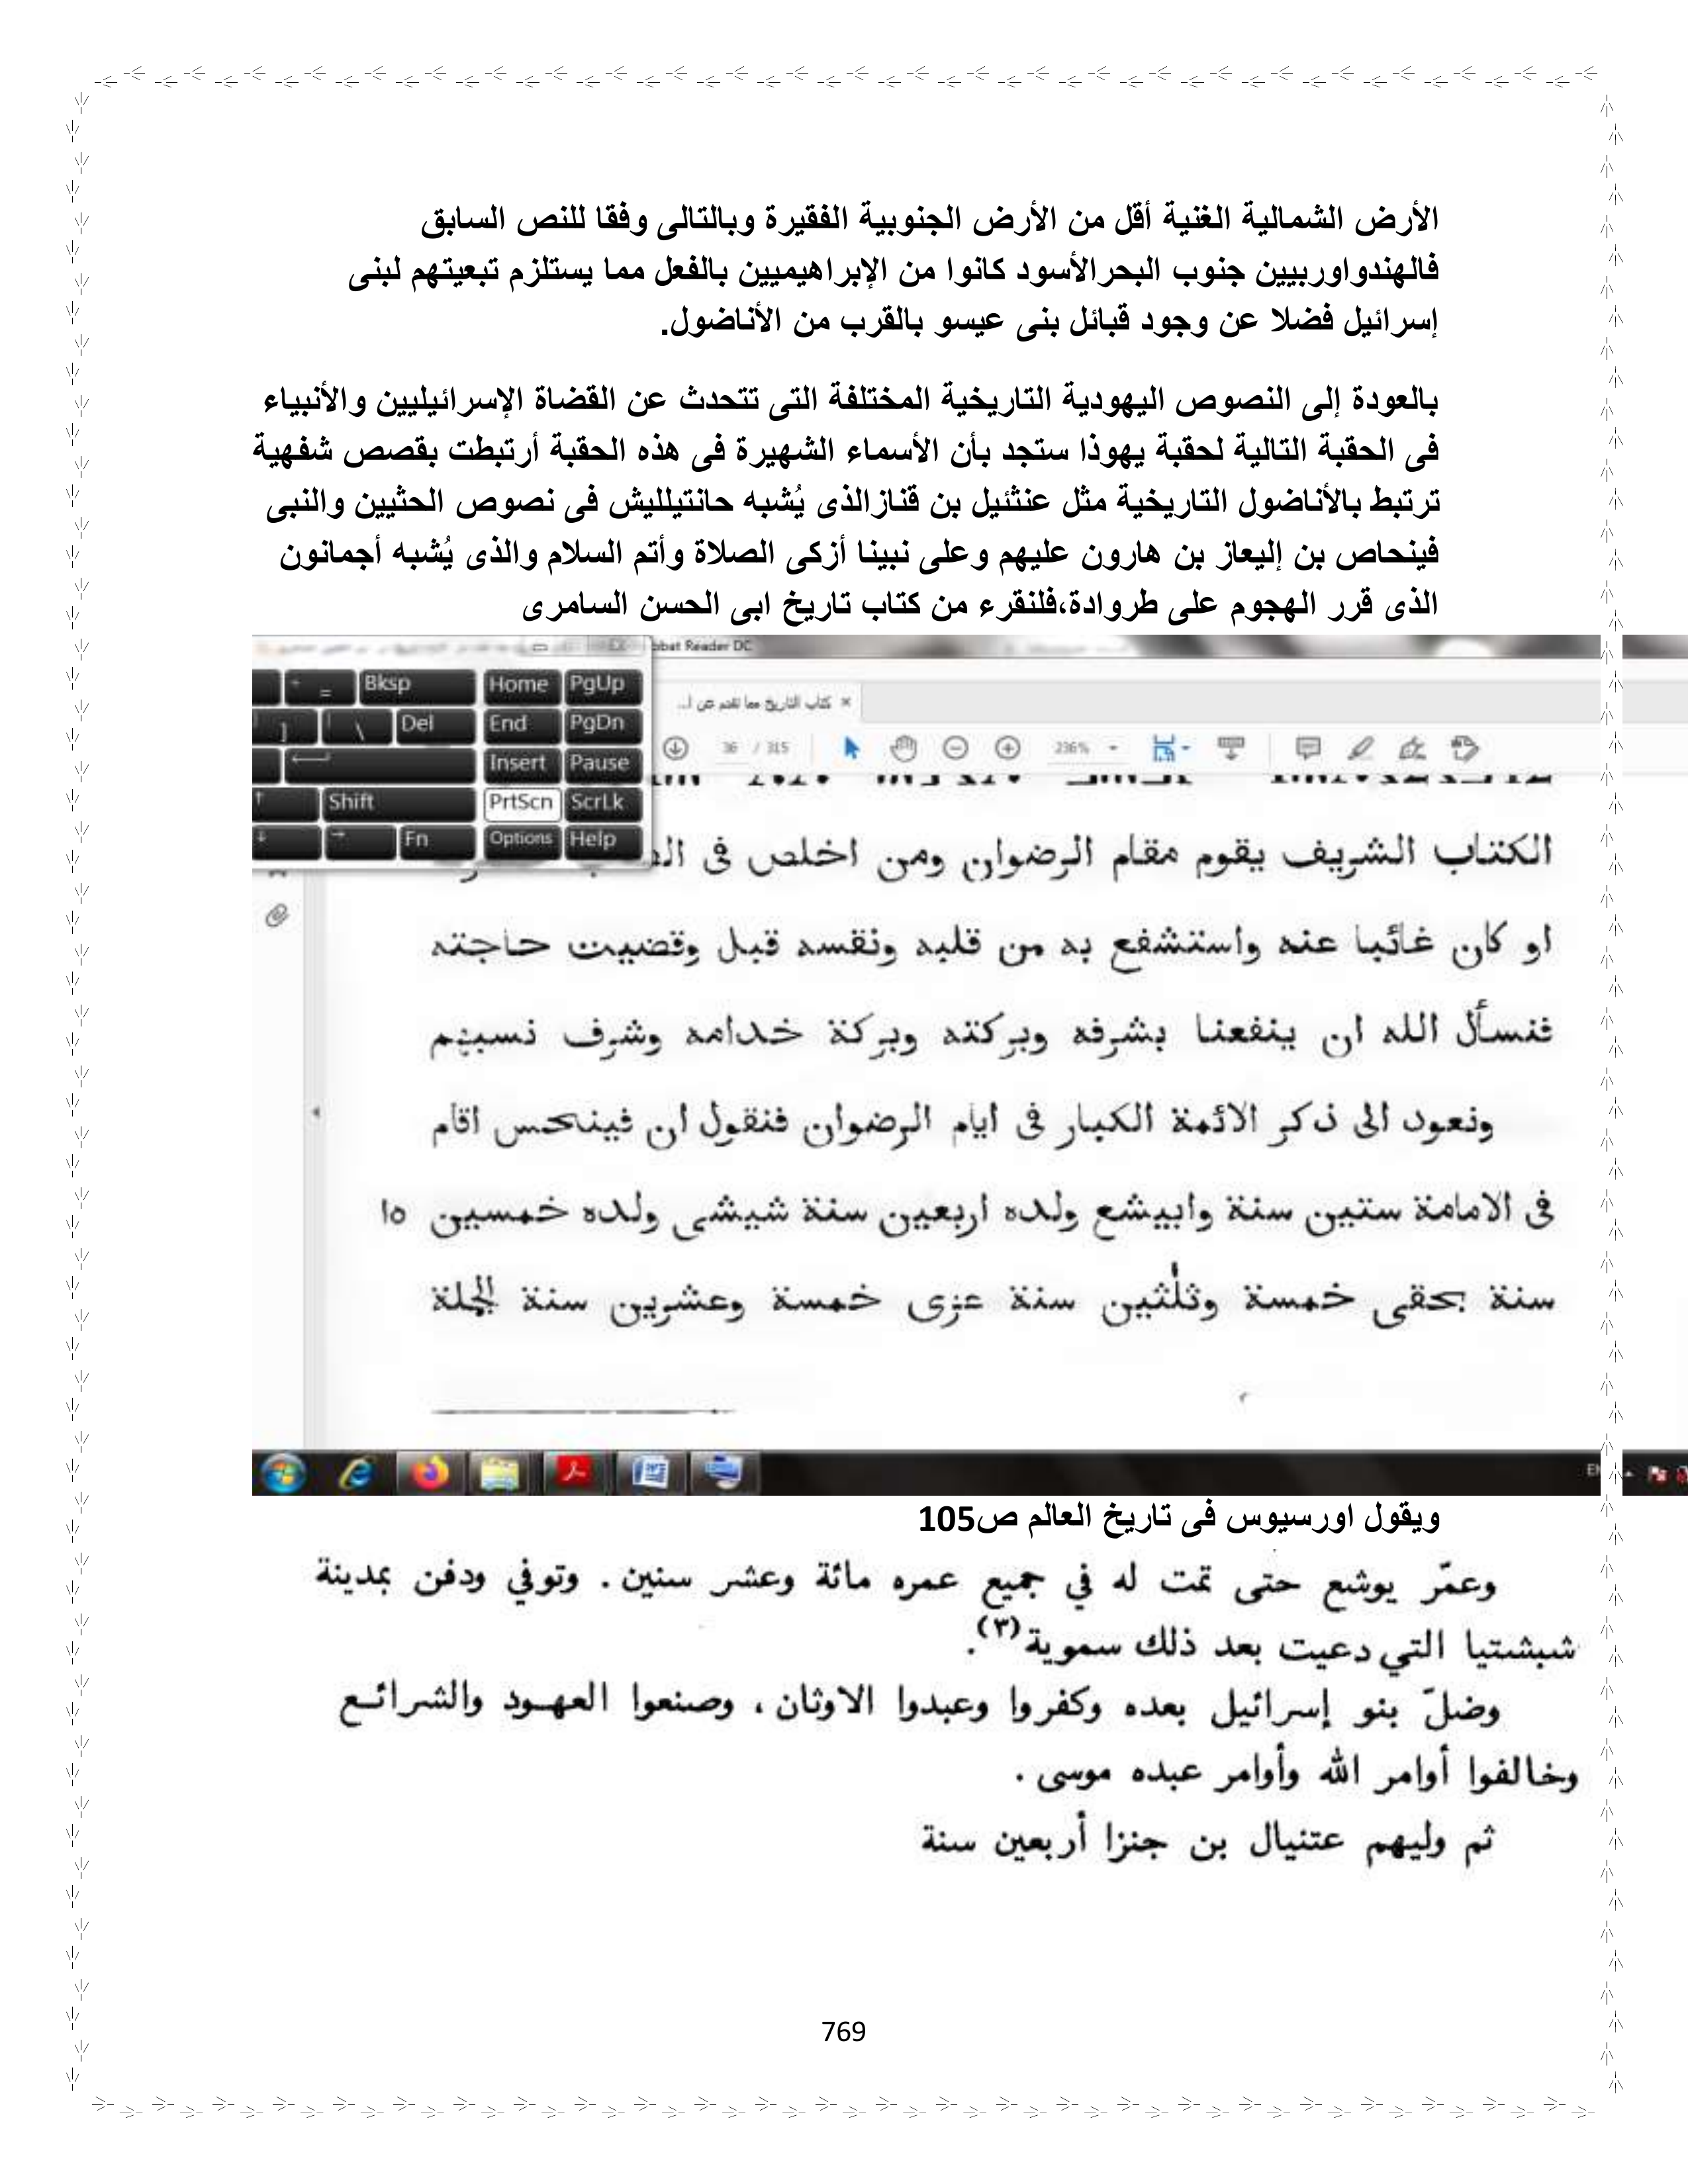 الأرض الشمالية الغنية أقل من الأرض الجنوبية الفقيرة وبالتالى وفقا للنص السابق
فالهندواوربيين جنوب البحرالأسود كانوا من الإبراهيميين بالفعل مما يستلزم تبعيتهم لبنى
إسرائيل فضلا عن وجود قبائل بنى عيسو بالقرب من الأناضول.
بالعودة إلى النصوص اليهودية التاريخية المختلفة التى تتحدث عن القضاة الإسرائيليين والأنبياء
فى الحقبة التالية لحقبة يهوذا ستجد بأن الأسماء الشهيرة فى هذه الحقبة أرتبطت بقصص شفهية
ترتبط بالأناضول التاريخية مثل عنثئيل بن قنازالذى يُشبه حانتيلليش فى نصوص الحثيين والنبى
فينحاص بن إليعاز بن هارون عليهم وعلى نبينا أزكى الصلاة وأتم السلام والذى يُشبه أجمانون
الذى قرر الهجوم على طروادة،فلنقرء من كتاب تاريخ ابى الحسن السامرى
obat Reader DC
+ = Bksp Home PgUp
] \ Del End PgDn
Insert Pause
Shift PrtScn ScrLk
Fn Options Help
كتاب التاريخ مما تقدم عن ا...
36 / 315 236%
الكتاب الشريف يقوم مقام الرضوان ومن اخلص فى
او كان غائبا عنه واستشفع به من قلبه ونقسه قبل وقضيت حاجته
فنسأل الله ان ينفعنا بشرفه وبركته وبركة خدامه وشرف نسبهم
ونعود الى ذكر الائمة الكبار فى ايام الرضوان فنقول ان فينحس اقام
فى الامامة ستين سنة وابيشع ولده اربعين سنة شيشى ولده خمسين ١٥
سنة بحقى خمسة وثلثين سنة عزى خمسة وعشرين سنة الجملة
ويقول اورسيوس فى تاريخ العالم ص105
وعمّر يوشع حتى تمت له في جميع عمره مائة وعشر سنين . وتوفي ودفن بمدينة
شبشتيا التي دعيت بعد ذلك سموية (٣).
وضلّ بنو إسرائيل بعده وكفروا وعبدوا الاوثان ، وصنعوا العهود والشرائع
وخالفوا أوامر الله وأوامر عبده موسى .
ثم وليهم عتنيال بن جنزا أربعين سنة
769